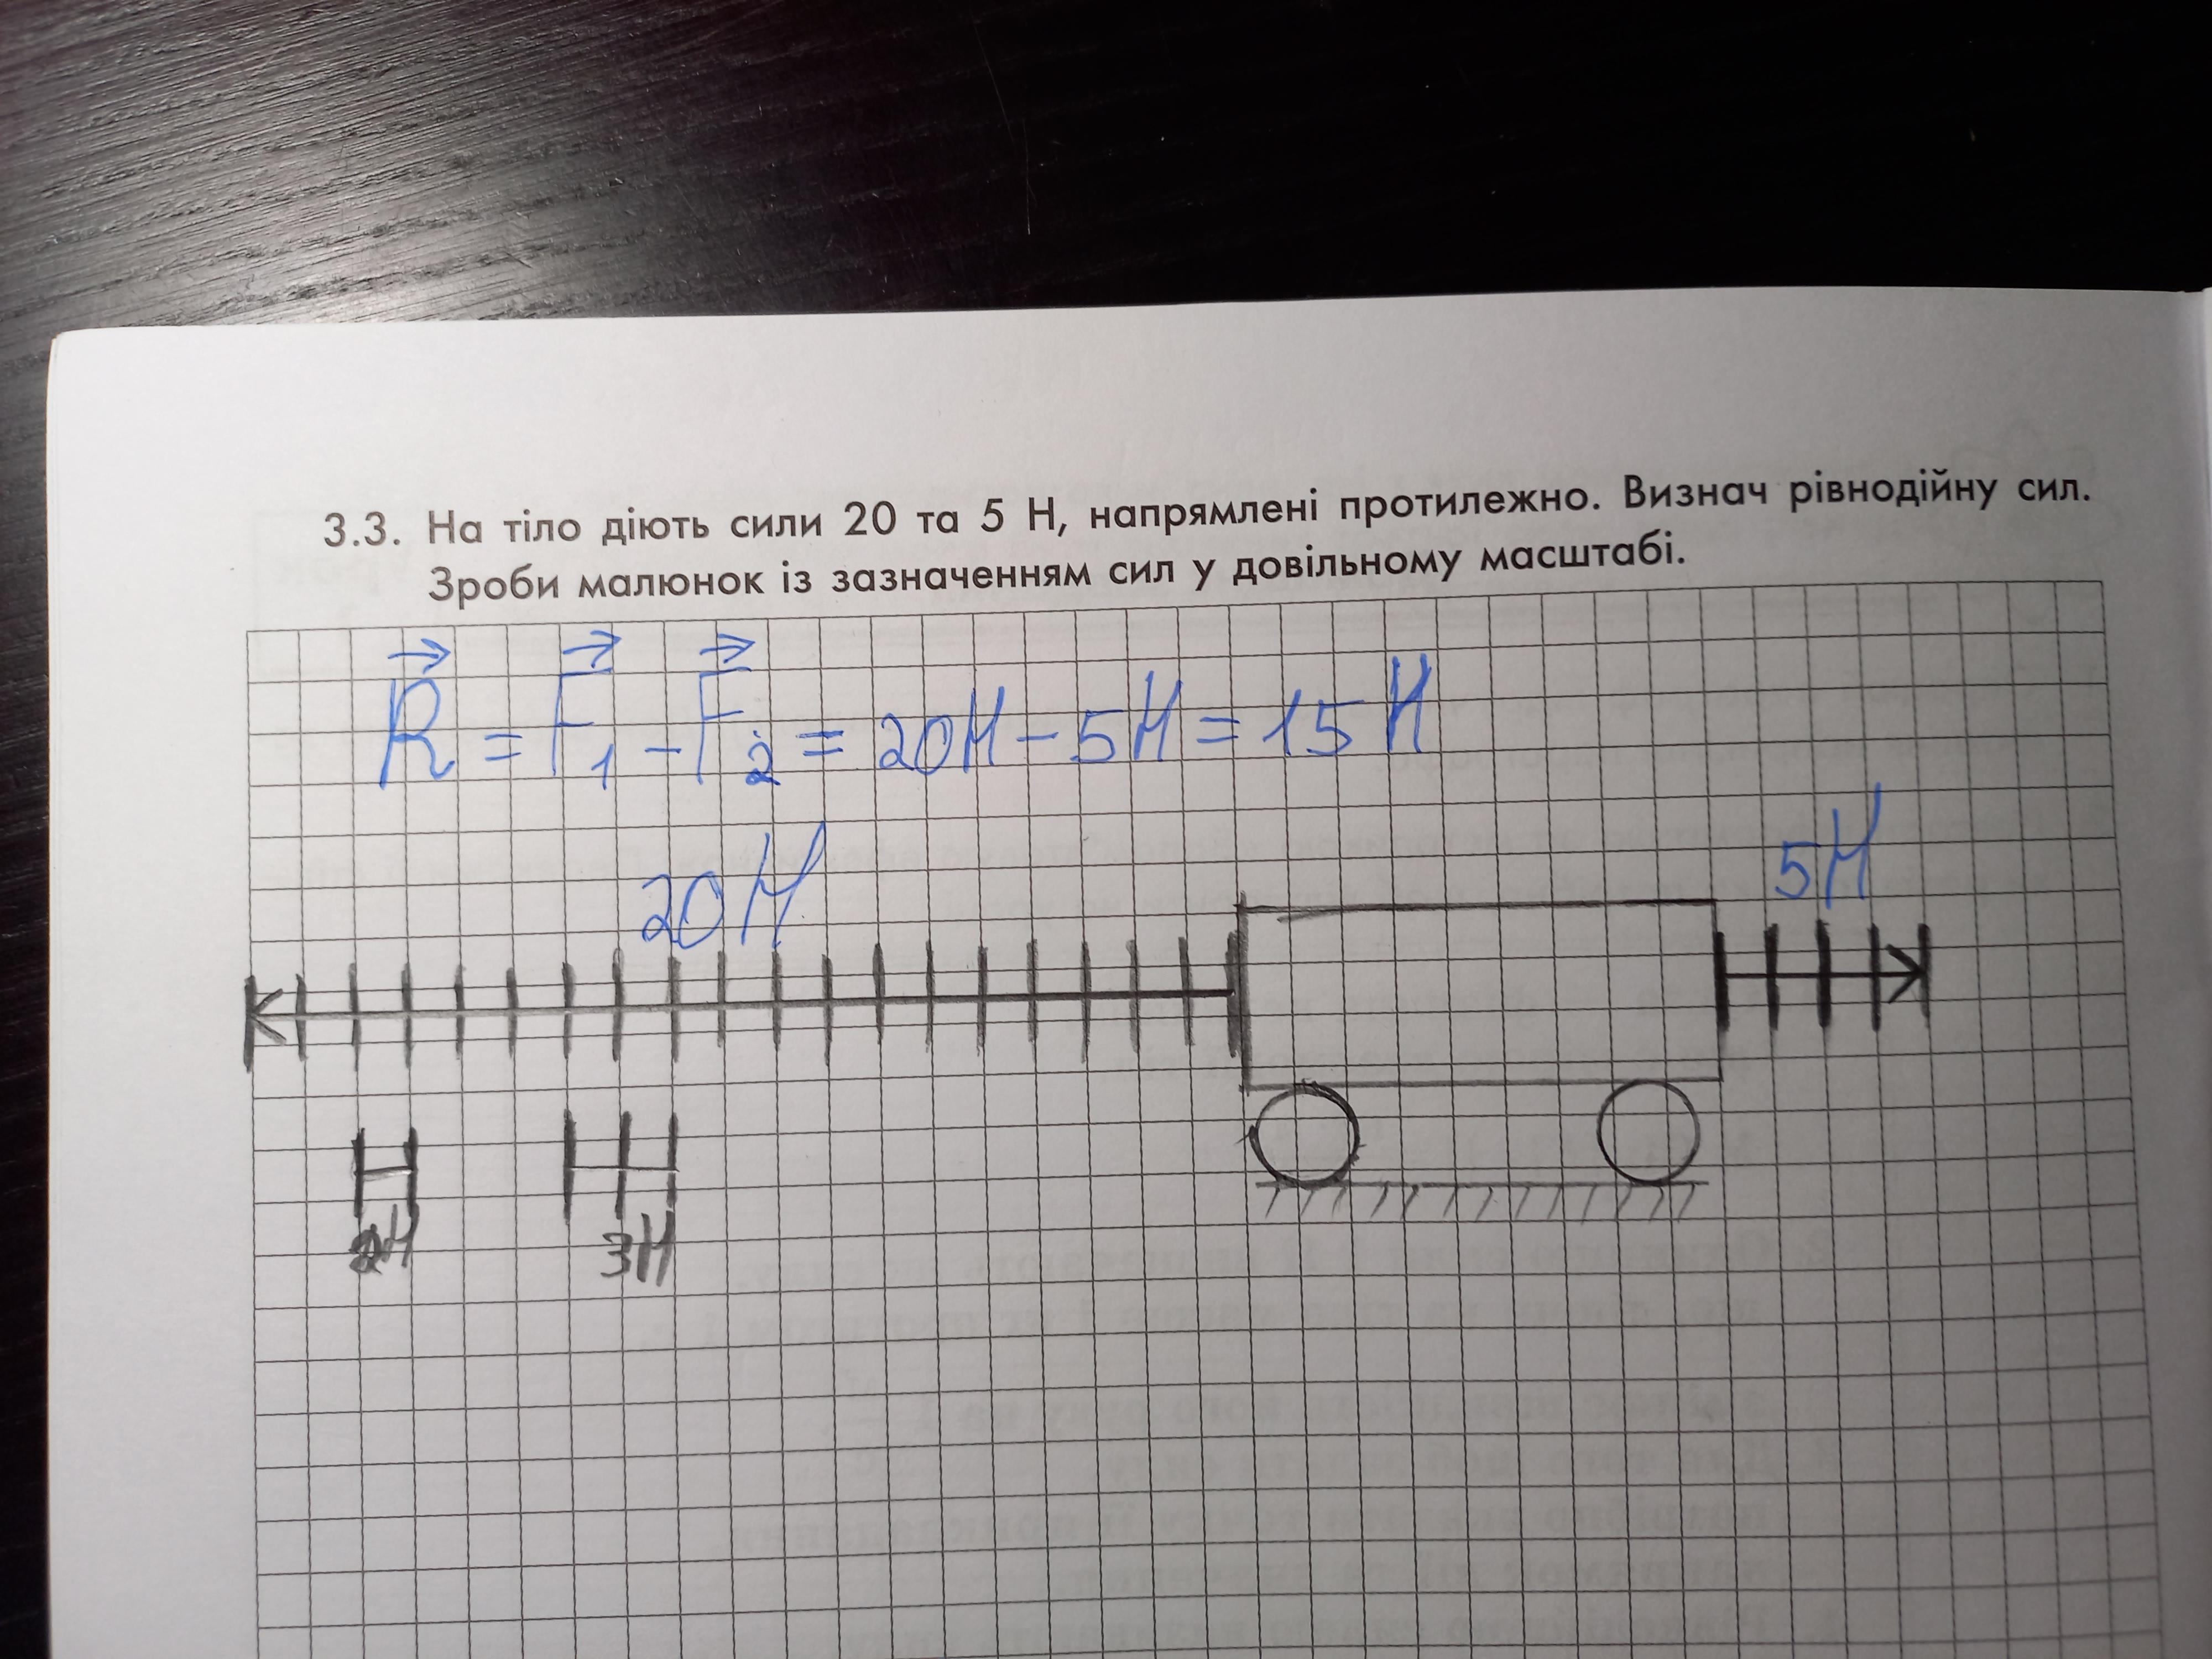 3.3. На тіло діють сили 20 та 5 Н, напрямлені протилежно. Визнач рівнодійну сил.
Зроби малюнок із зазначенням сил у довільному масштабі.
R⃗ = F⃗₁ − F⃗₂ = 20Н − 5Н = 15 Н
20Н
5Н
3Н